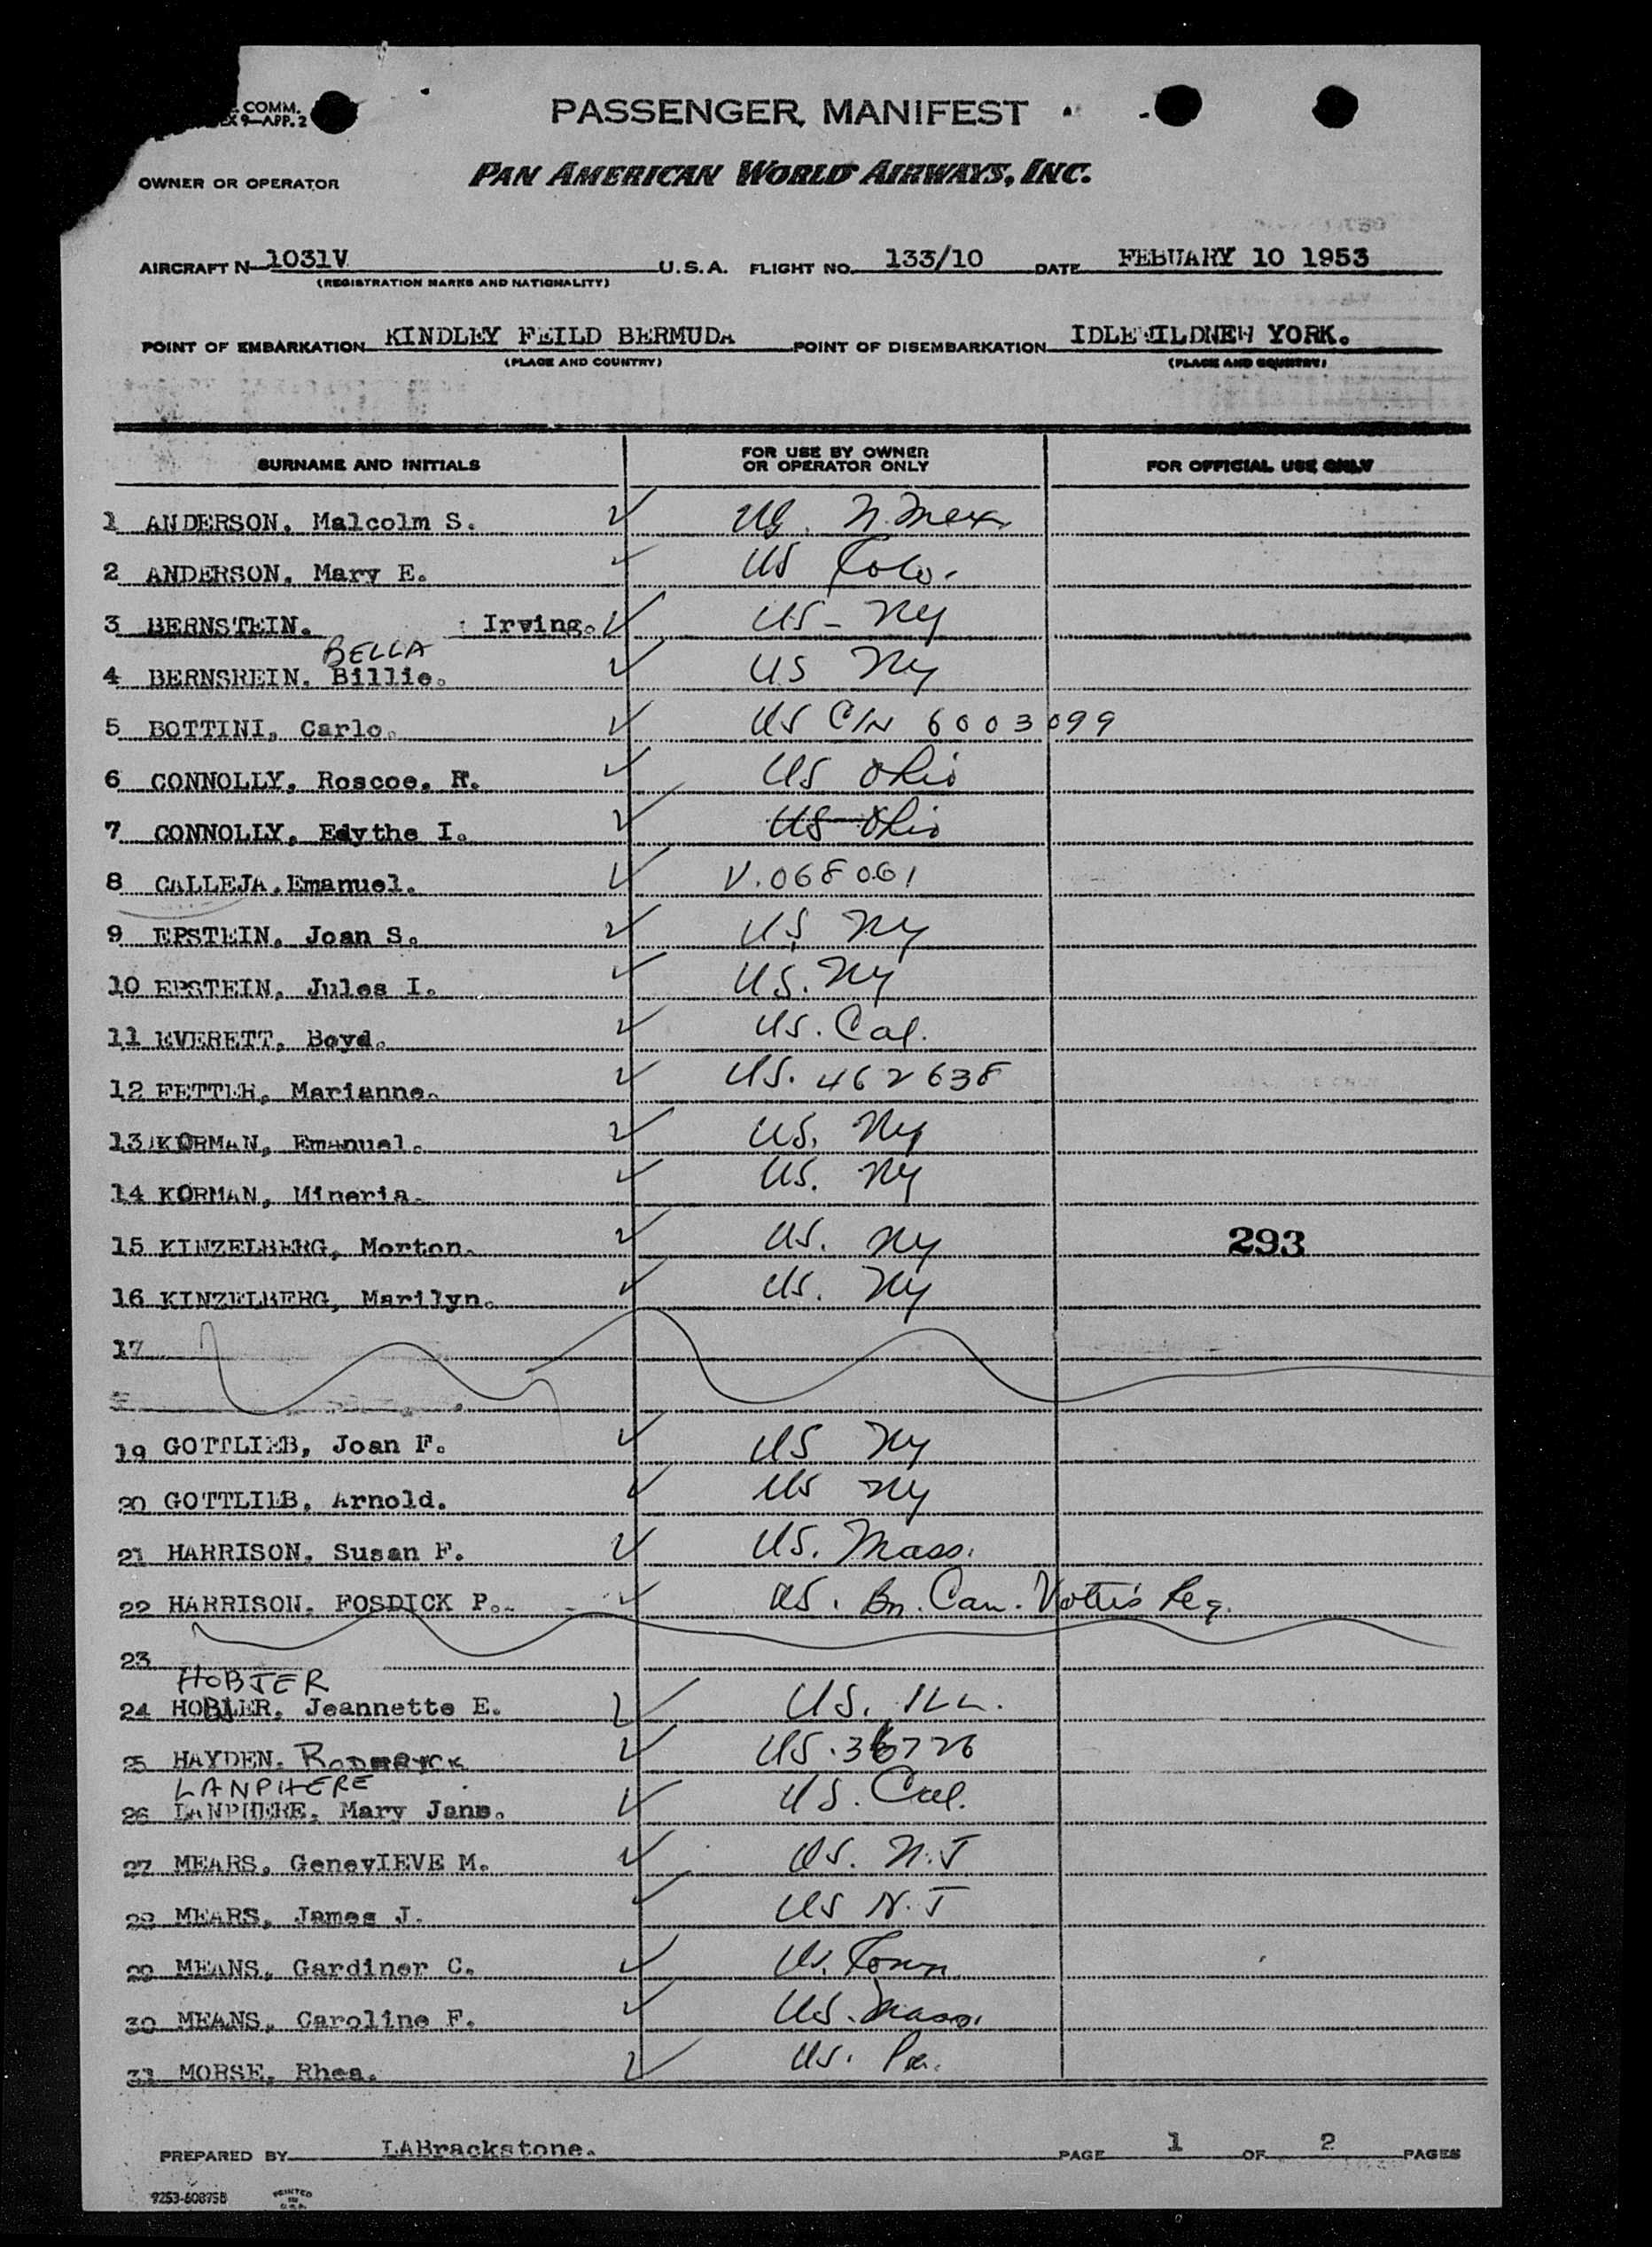 COMM.
9-APP. 2
PASSENGER MANIFEST
OWNER OR OPERATOR
PAN AMERICAN WORLD AIRWAYS, INC.
AIRCRAFT N 1031V U.S.A. FLIGHT NO. 133/10 DATE FEBUARY 10 1953
(REGISTRATION MARKS AND NATIONALITY)
POINT OF EMBARKATION KINDLEY FEILD BERMUDA POINT OF DISEMBARKATION IDLEWILDNEW YORK.
(PLACE AND COUNTRY) (PLACE AND COUNTRY)
SURNAME AND INITIALS FOR USE BY OWNER OR OPERATOR ONLY FOR OFFICIAL USE ONLY
1 ANDERSON, Malcolm S. ✓ US. N. Mex.
2 ANDERSON, Mary E. ✓ US Colo.
3 BERNSTEIN. Irving. ✓ US - NY
BELLA
4 BERNSREIN, Billie. ✓ US NY
5 BOTTINI, Carlo. ✓ US C/N 6003099
6 CONNOLLY, Roscoe, R. ✓ US Ohio
7 CONNOLLY, Edythe I. ✓ US Ohio
8 CALLEJA, Emanuel. ✓ V.068061
9 EPSTEIN, Joan S. ✓ US NY
10 EPSTEIN, Jules I. ✓ US. NY
11 EVERETT, Boyd. ✓ US. Cal.
12 FETTER, Marianne. ✓ US. 462638
13 KORMAN, Emanuel. ✓ US. NY
14 KORMAN, Mineria. ✓ US. NY
15 KINZELBERG, Morton. ✓ US. NY 293
16 KINZELBERG, Marilyn. ✓ US. NY
17
19 GOTTLIEB, Joan F. ✓ US NY
20 GOTTLIEB, Arnold. ✓ US NY
21 HARRISON, Susan F. ✓ US. Mass.
22 HARRISON, FOSDICK P. ✓ US. Bn. Can. Reg.
23
HOBJER
24 HOBJER, Jeannette E. ✓ US. ILL.
25 HAYDEN. RODERYCK ✓ US. 36726
LANPHERE
26 LANPHERE, Mary Jane. ✓ US. Cal.
27 MEARS, GenevIEVE M. ✓ US. N.J
28 MEARS, James J. ✓ US N.J
29 MEANS, Gardiner C. ✓ US. Conn.
30 MEANS, Caroline F. ✓ US. Mass.
31 MORSE, Rhea. ✓ US. Pa.
PREPARED BY LABrackstone. PAGE 1 OF 2 PAGES
9253-60875B PRINTED IN U.S.A.